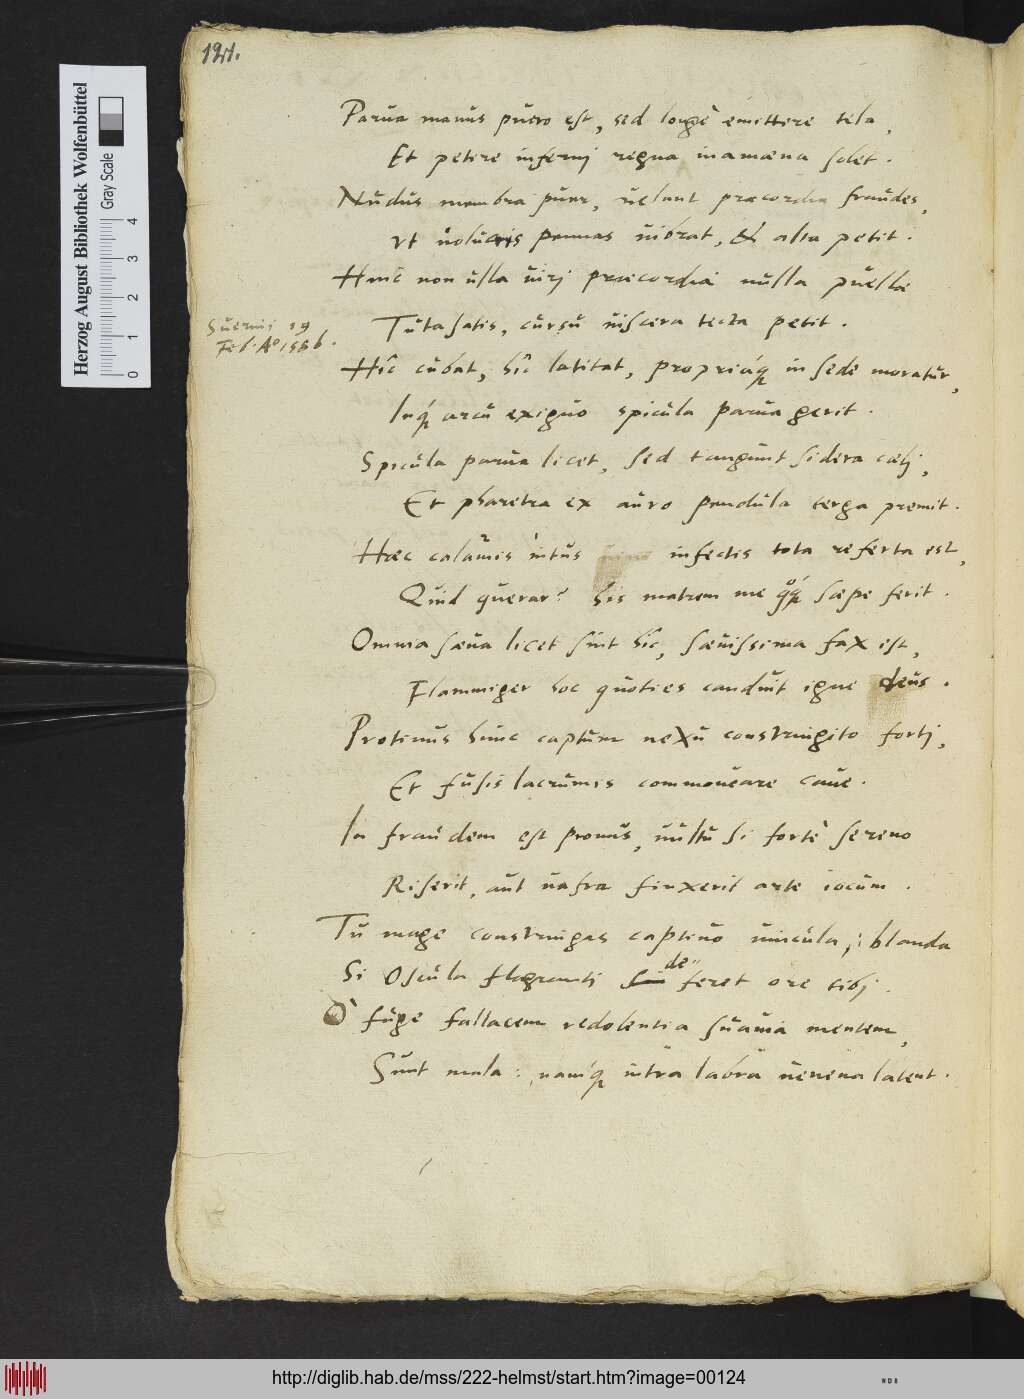 121.
Parua manus puero est, sed longè emittere tela,
Et petere infernj regna inamœna solet.
Nudus membra puer, uelant præcordia fraudes,
Vt uolucris pennas uibrat, & alta petit.
Hinc non ulla uirj præcordia nulla puellæ
Tuta satis, cursu uiscera tecta petit.
Suerinj 19
Feb. Aº 1556.
Hîc cubat, hîc latitat, propriáq́; in sede moratur,
Inq́; arcu exiguo spicula parua gerit.
Spicula parua licet, sed tangunt sidera cælj,
Et pharetra ex auro pendula terga premit.
Hæc calamis intus infectis tota referta est,
Quid querar? his matrem me qºq́; sæpe ferit.
Omnia sæua licet sint hîc, sæuissima fax est,
Flammiger hoc quoties canduit igne deus.
Protinus hunc captum nexu constringito fortj,
Et fusis lacrumis commoueare caue.
In fraudem est pronus, uultu si fortè sereno
Riserit, aut uafra finxerit arte iocum.
Tu mage constringas captiuo uincula, blanda
Si oscula flagranti de feret ore tibj.
O fuge fallacem redolentia suauia mentem,
Sunt mala: namq́; intra labra uenena latent.
Herzog August Bibliothek Wolfenbüttel
Gray Scale
0 1 2 3 4
http://diglib.hab.de/mss/222-helmst/start.htm?image=00124